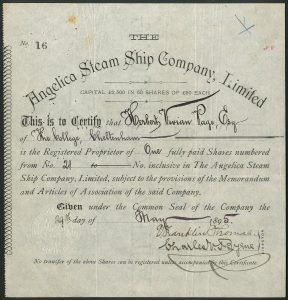 THE
No. 16
Angelica Steam Ship Company, Limited
CAPITAL £2,500 IN 50 SHARES OF £50 EACH
This is to Certify that Herbert Vivian Page, Esq
of The College, Cheltenham
is the Registered Proprietor of One fully paid Shares numbered
from No. 21 to No. inclusive in The Angelica Steam
Ship Company, Limited, subject to the provisions of the Memorandum
and Articles of Association of the said Company.
Given under the Common Seal of the Company the
day of May 1895.
Franklin Thomas
Charles
No transfer of the above Shares can be registered unless accompanied by this Certificate.